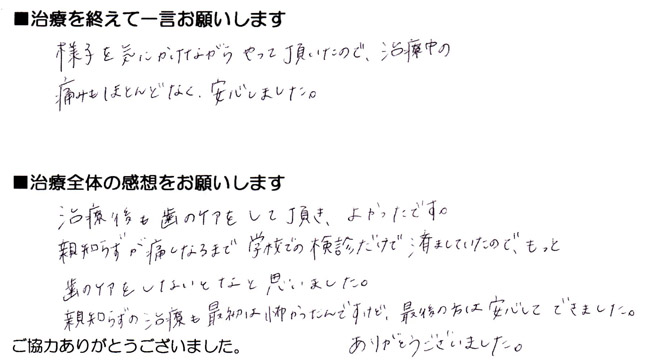 ■治療を終えて一言お願いします
様子を気にかけながらやって頂いたので、治療中の
痛みもほとんどなく、安心しました。
■治療全体の感想をお願いします
治療後も歯のケアをして頂き、よかったです。
親知らずが痛くなるまで学校での検診だけで済ましていたので、もっと
歯のケアをしないとなと思いました。
親知らずの治療も最初は怖かったんですけど、最後の方は安心してできました。
ありがとうございました。
ご協力ありがとうございました。